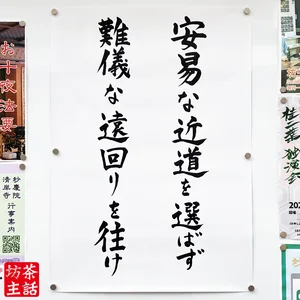 安易な近道を選ばず
難儀な遠回りを往け
お十夜法要
妙慶院
清岸寺
行事案内
坊主
茶話